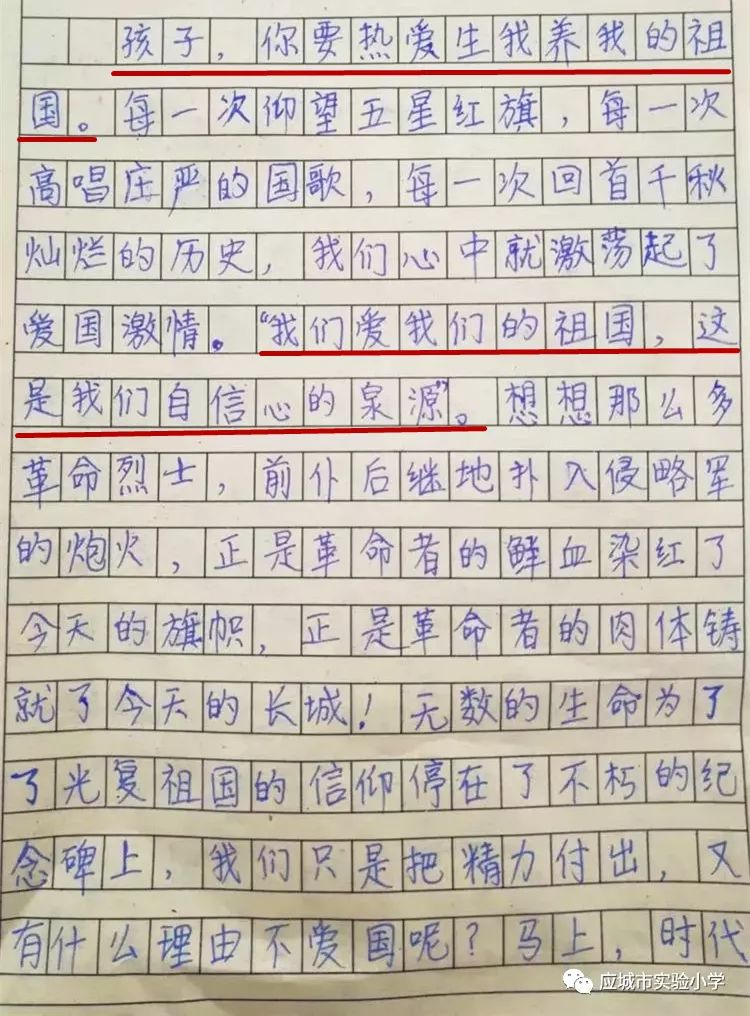 孩子，你要热爱生我养我的祖
国。每一次仰望五星红旗，每一次
高唱庄严的国歌，每一次回首千秋
灿烂的历史，我们心中就激荡起了
爱国激情。“我们爱我们的祖国，这
是我们自信心的泉源”。想想那么多
革命烈士，前仆后继地扑入侵略军
的炮火，正是革命者的鲜血染红了
今天的旗帜，正是革命者的肉体铸
就了今天的长城！无数的生命为了
了光复祖国的信仰停在了不朽的纪
念碑上，我们只是把精力付出，又
有什么理由不爱国呢？马上，时代
应城市实验小学